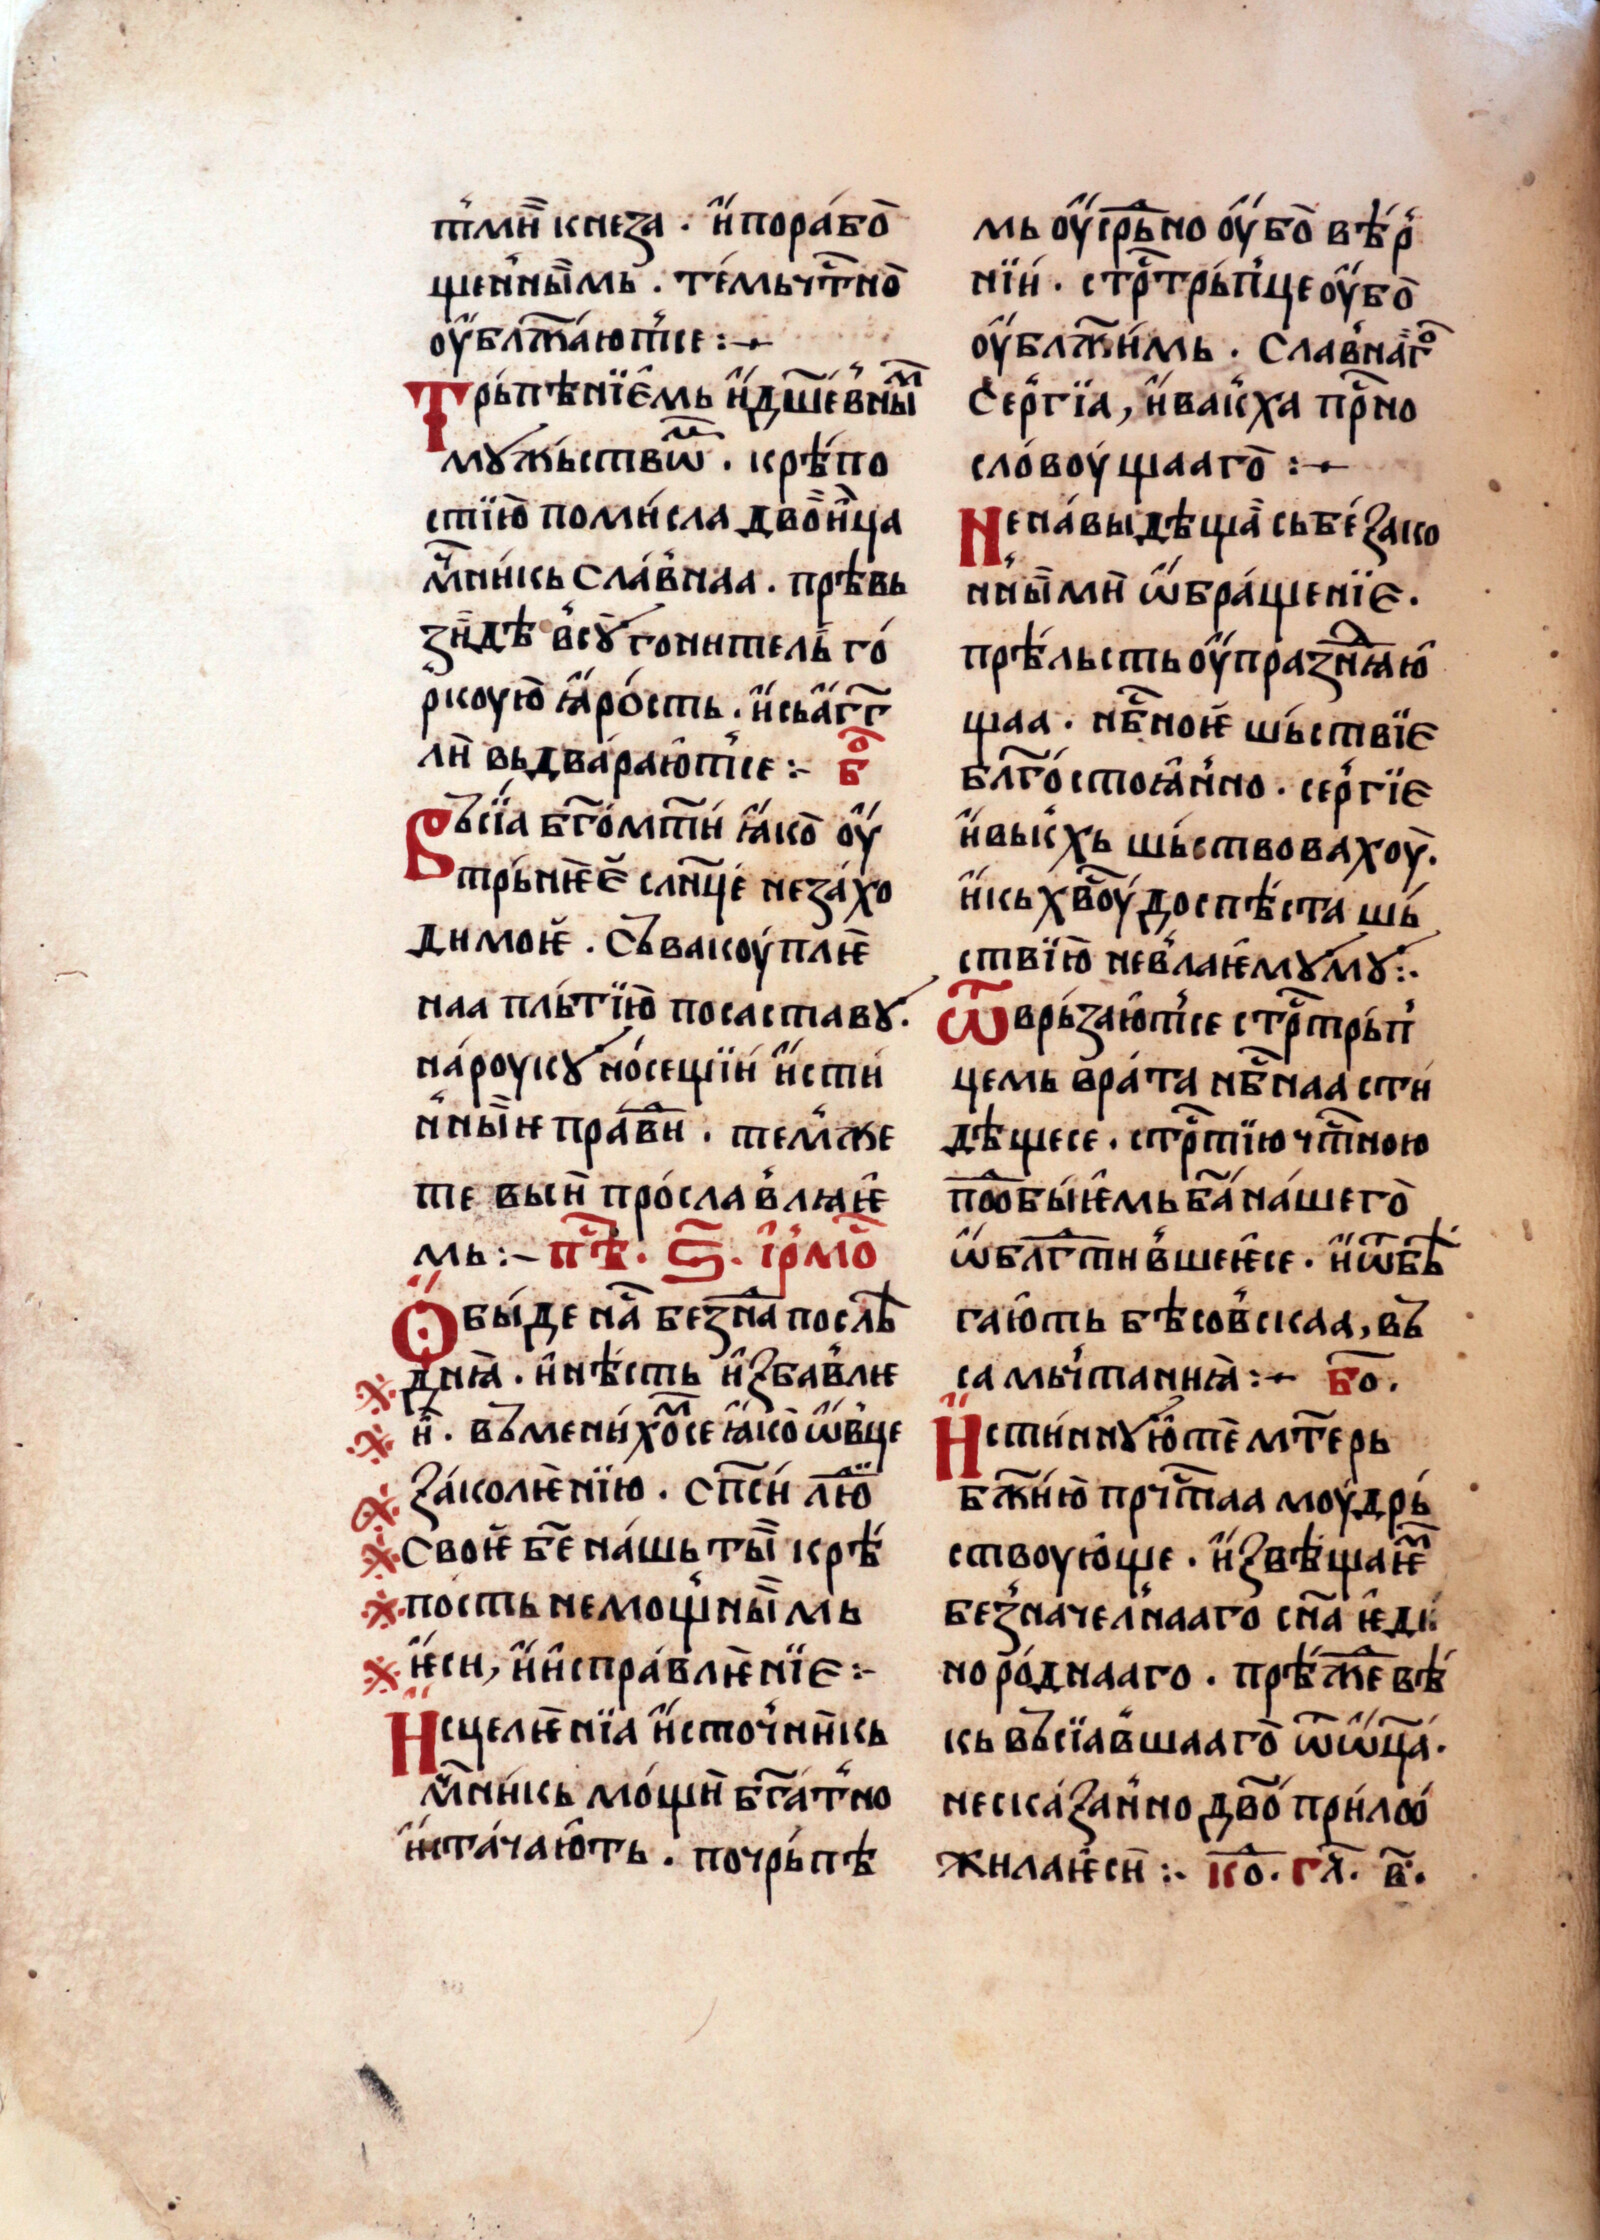 тⷨмнї кнеза · и҆ пора́бо
щен꙽ны̏мь · те́мь чⷭ҇тно
ᲂу҆бл҃жа́ют꙽се :⁓
Трьпѣнїе́мь и҆ дш҃е́в꙽ныⷨ
мꙋжьствѡⷨ · крѣ́по
стїю̀ поми́сла двои̏ца
мч҃ни́кь сла́в꙽наа · прѣвь
зы̏дѣ в꙽сꙋ̀ гонитель го́
ркоую̀ ꙗ҆́рость · и҆ сь а҆гг҃
ли̏ вьдвара́ют꙽се :⁓ бⷪ҇
Въсїа бг҃о́мт҃и ꙗ҆ко̀ ᲂу҆
трьнѥ́е сл҃нце неза́хо
димоѥ · Съвакоу́плѥ
наа пльтїю̀ посаставꙋ ·
на́роукꙋ но́сещїи и҆сти́
н꙽ны̏ѥ пра́ви · тем꙽же
те вьси̏ про́слав꙽лꙗѥ
мь :⁓ пⷭ҇ѣ · ѕ҃ · і҆рмо́
Обы́де на̏ безⷣна послѣ
днꙗ · и҆ нѣ́сть и҆збав꙽лѥ
и̏ · въмени́ хоⷨсе ꙗ҆ко̀ ѡ҆в꙽це
за́колѥнїю · сп҃си́ лю́ⷣ
своѥ бж҃е на́шь ты̏ крѣ́
пость немощ꙽ны̏мь
ѥ҆си, и҆ и҆спра́влѥнїе :⁓
Исцелѥнїа и҆сточ꙽ни̏кь
мч҃ни́кь мо́щи̏ бг҃а́т꙽но
и҆ста́чають · почрьпѣ
мь ᲂу҆срⷣьно ᲂу҆бо̀ вѣ́р꙽
нїи · стрⷭ҇трьп꙽це ᲂу҆бо̀
ᲂу҆бл҃жи́мь · слав꙽наго̏
Сер꙽гїа, и҆ вак꙽ха прⷭ҇но
сло́воу́щааго̀ :⁓
Нена́выдѣща̏ сьбе́зако
н꙽ны̏ми̏ ѡ҆бра́щенїе ·
прѣ́льсть ᲂу҆празⷣнꙗю
щаа · нбⷭ҇ноѥ шьствїе
бл҃го́стоꙗ҆н꙽но · сер꙽гїе
и҆ вьк꙽хь шьствовахоу̀ ·
и҆ кь хвⷭ҇оу́ доспѣ́ста шь́
ствїю̀ нев꙽лаѥмꙋмꙋ :·
Ѿврьзают꙽се стрⷭ҇трьп꙽
цемь вра́та нбⷭ҇наа сти
дѣщесе · стрⷭ҇тїю чⷭ҇тною
поⷣбы́ѥмь ба҃ на́шего̀
ѡ҆блⷭ҇гти́в꙽шеѥсе · и҆ ѿбѣ
гають бѣсов꙽скаа, въ
са мьч꙽таннꙗ :⁓ бо҃ ·
И҆сти́ннꙋю те мт҃ерь
бж҃ию̀ прчⷭ҇таа моу́дрь́
ствоующе · и҆звѣщаѥⷨ
без꙽начел꙽нааго сн҃а ѥ҆ди
норо́днааго · прѣ́жⷣе вѣ́
кь въсїав꙽шааго̀ ѿ ѡ҆ц҃а́ ·
неска́зан꙽но дв҃о́ прило́
жилаѥси̏ :· ко҃ · гл҃ · в҃ ·